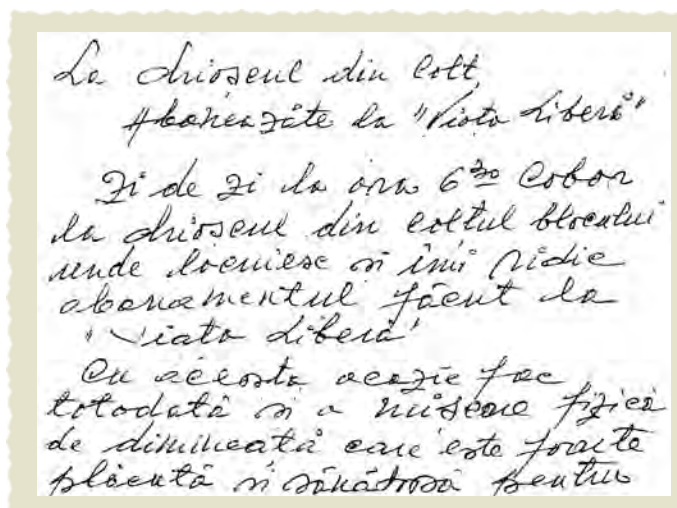 La chioșcul din colt
Abonează-te la "Viata Liberă"
Zi de zi la ora 6³⁰ cobor
la chioșcul din coltul blocului
unde locuiesc si îmi ridic
abonamentul făcut la
"Viata Liberă"
Cu aceasta ocazie fac
totodată si o mișcare fizică
de dimineată care este foarte
plăcută si sănătoasă pentru